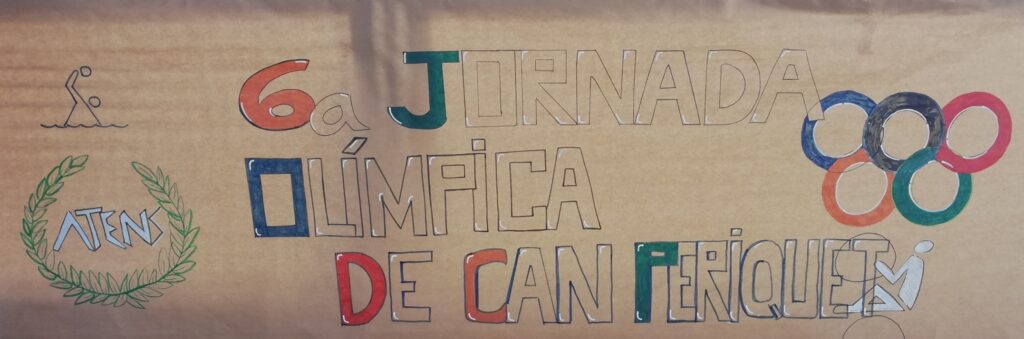 6a JORNADA
OLÍMPICA
DE CAN PERIQUET
ATENS